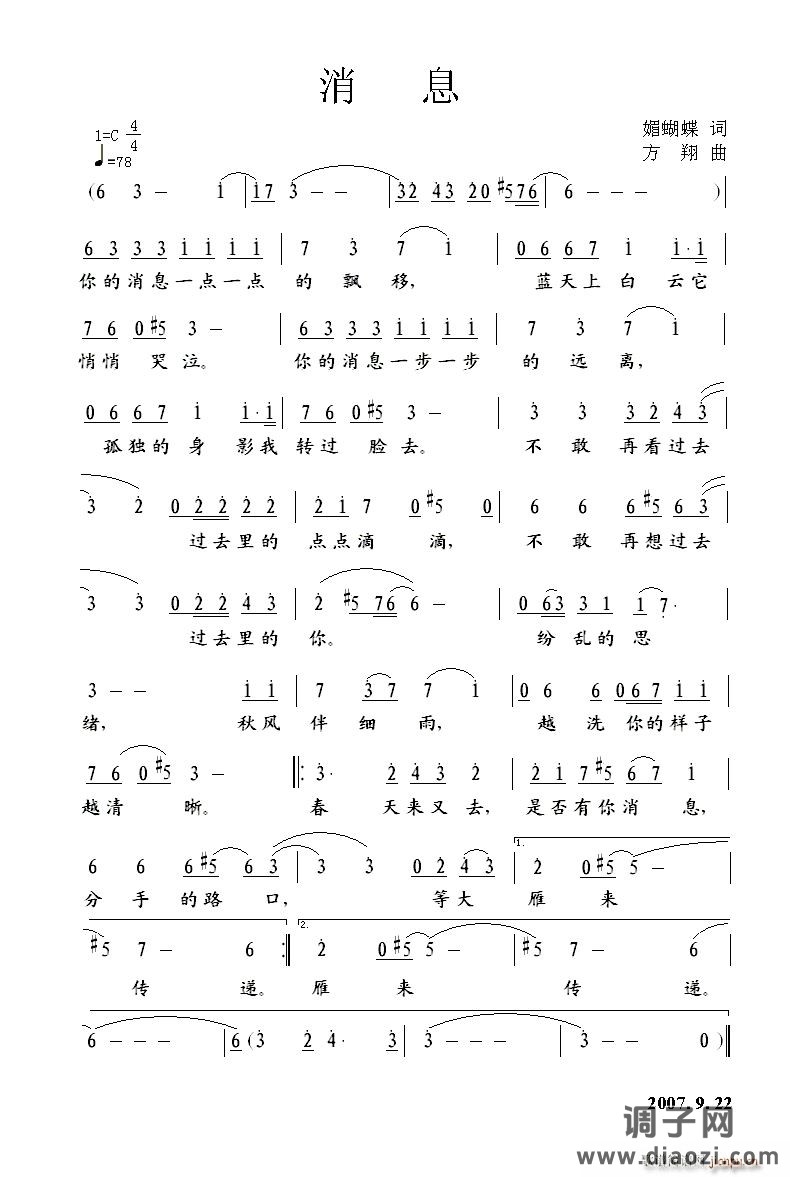 消 息
1=C 4/4
媚蝴蝶 词
♩=78
方 翔 曲
(6 3 - i | i7 3 - - | 32 43 20 #576 | 6 - - ) |
63 33 ii ii | 7 3 7 i | 06 67 i i·i |
你的消息一点一点 的 飘 移, 蓝天上 白 云它
76 0#5 3 - | 63 33 ii ii | 7 3 7 i |
悄悄 哭泣。 你的消息一步一步 的 远 离,
06 67 i i·i | 76 0#5 3 - | 3 3 32 43 |
孤独的 身 影我 转过 脸去。 不 敢 再看过去
3 2 022 22 | 2i 7 0#5 0 | 6 6 6#5 63 |
过去里的 点点滴 滴, 不 敢 再想过去
3 3 022 43 | 2 #5 76 6 - | 063 31 i7· |
过去里的 你。 纷乱的 思
3 - - ii | 7 37 7 i | 06 6 067 ii |
绪, 秋风 伴 细 雨, 越 洗 你的样子
76 0#5 3 - ‖: 3· 2 43 2 | 2i 7#5 67 i |
越清 晰。 春 天来又去, 是否有你消 息,
6 6 6#5 63 | 3 3 02 43 | 1. 2 0#5 5 - |
分 手 的路 口, 等大 雁 来
#5 7 - 6 :‖ 2. 2 0#5 5 - | #5 7 - 6 |
传 递。 雁 来 传 递。
6 - - - | 6 (3 2 4· 3 | 3 - - - | 3 - - 0 ) ‖
2007.9.22
调子网
www.diaozi.com